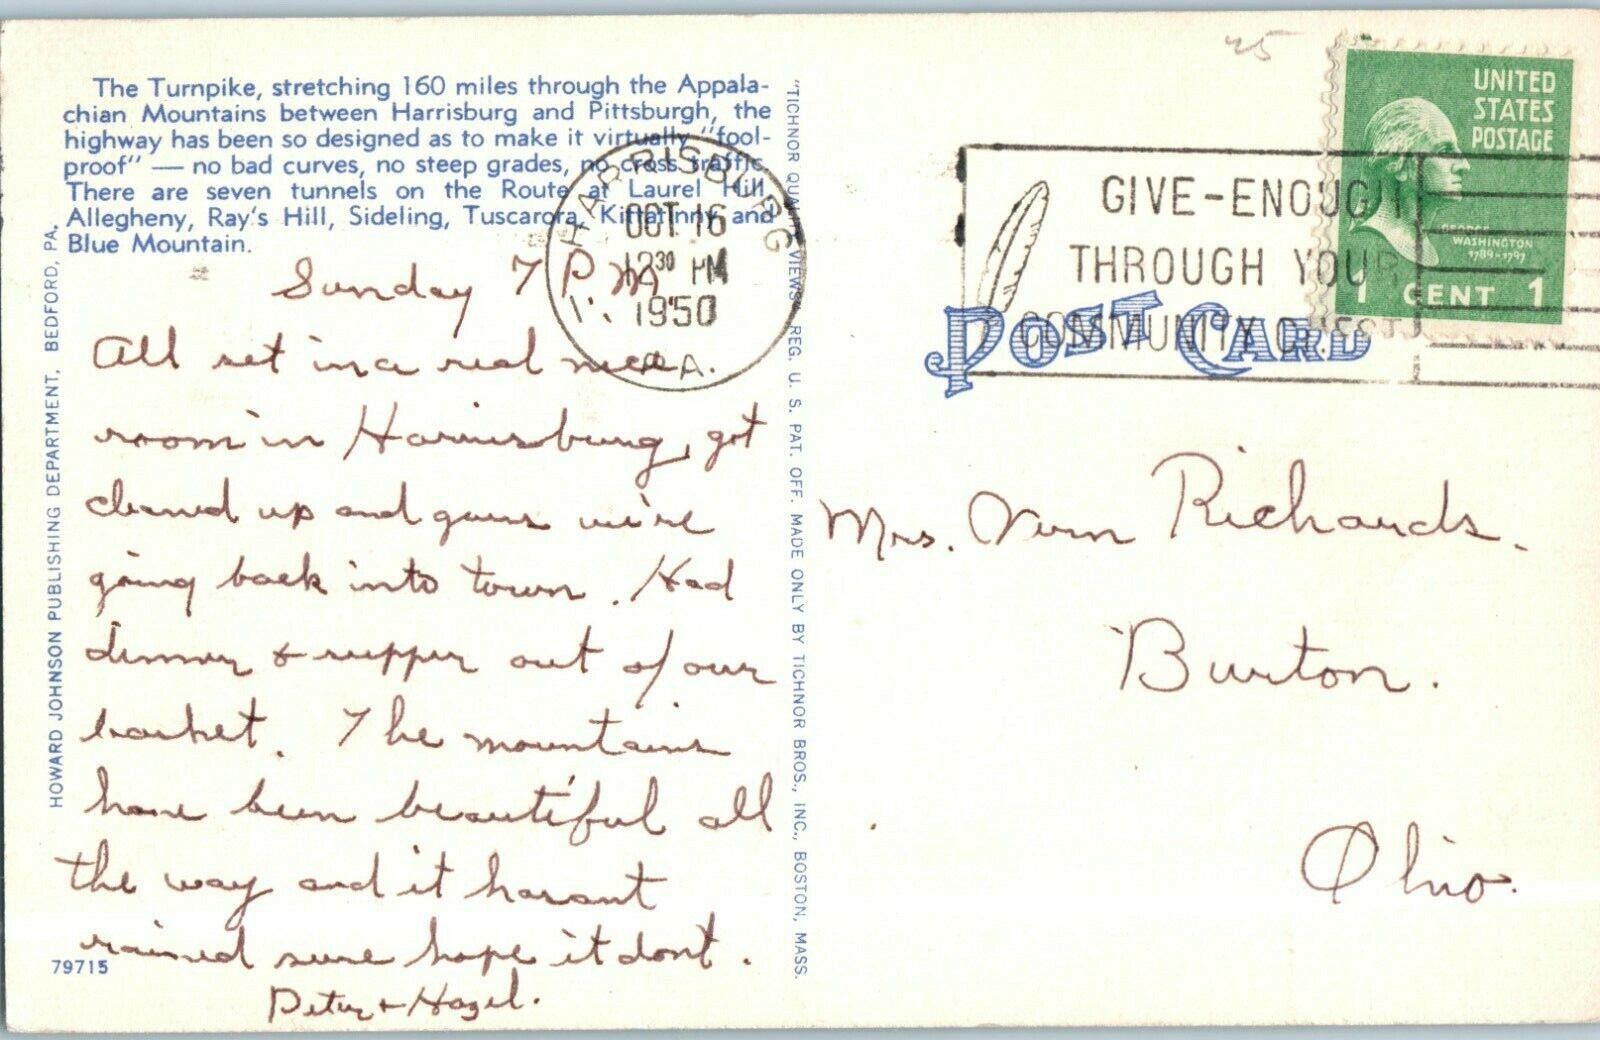 45
The Turnpike, stretching 160 miles through the Appala-
chian Mountains between Harrisburg and Pittsburgh, the
highway has been so designed as to make it virtually "fool-
proof" — no bad curves, no steep grades, no cross traffic.
There are seven tunnels on the Route at Laurel Hill,
Allegheny, Ray's Hill, Sideling, Tuscarora, Kittatinny and
Blue Mountain.
HARRISBURG
OCT 16
12 30 PM
1950
PA.
Sunday 7 P.M.
All set in a real nice
room in Harrisburg, got
cleaned up and guess we're
going back into town. Had
dinner & supper out of our
basket. The mountains
have been beautiful all
the way and it hasant
rained sure hope it dont.
Peter & Hazel.
79715
HOWARD JOHNSON PUBLISHING DEPARTMENT, BEDFORD, PA.
"TICHNOR QUALITY VIEWS," REG. U. S. PAT. OFF. MADE ONLY BY TICHNOR BROS., INC., BOSTON, MASS.
GIVE-ENOUGH
THROUGH YOUR
COMMUNITY CHEST
UNITED
STATES
POSTAGE
GEORGE
WASHINGTON
1789-1797
1 CENT 1
POST CARD
Mrs. Vern Richards.
Burton.
Ohio.